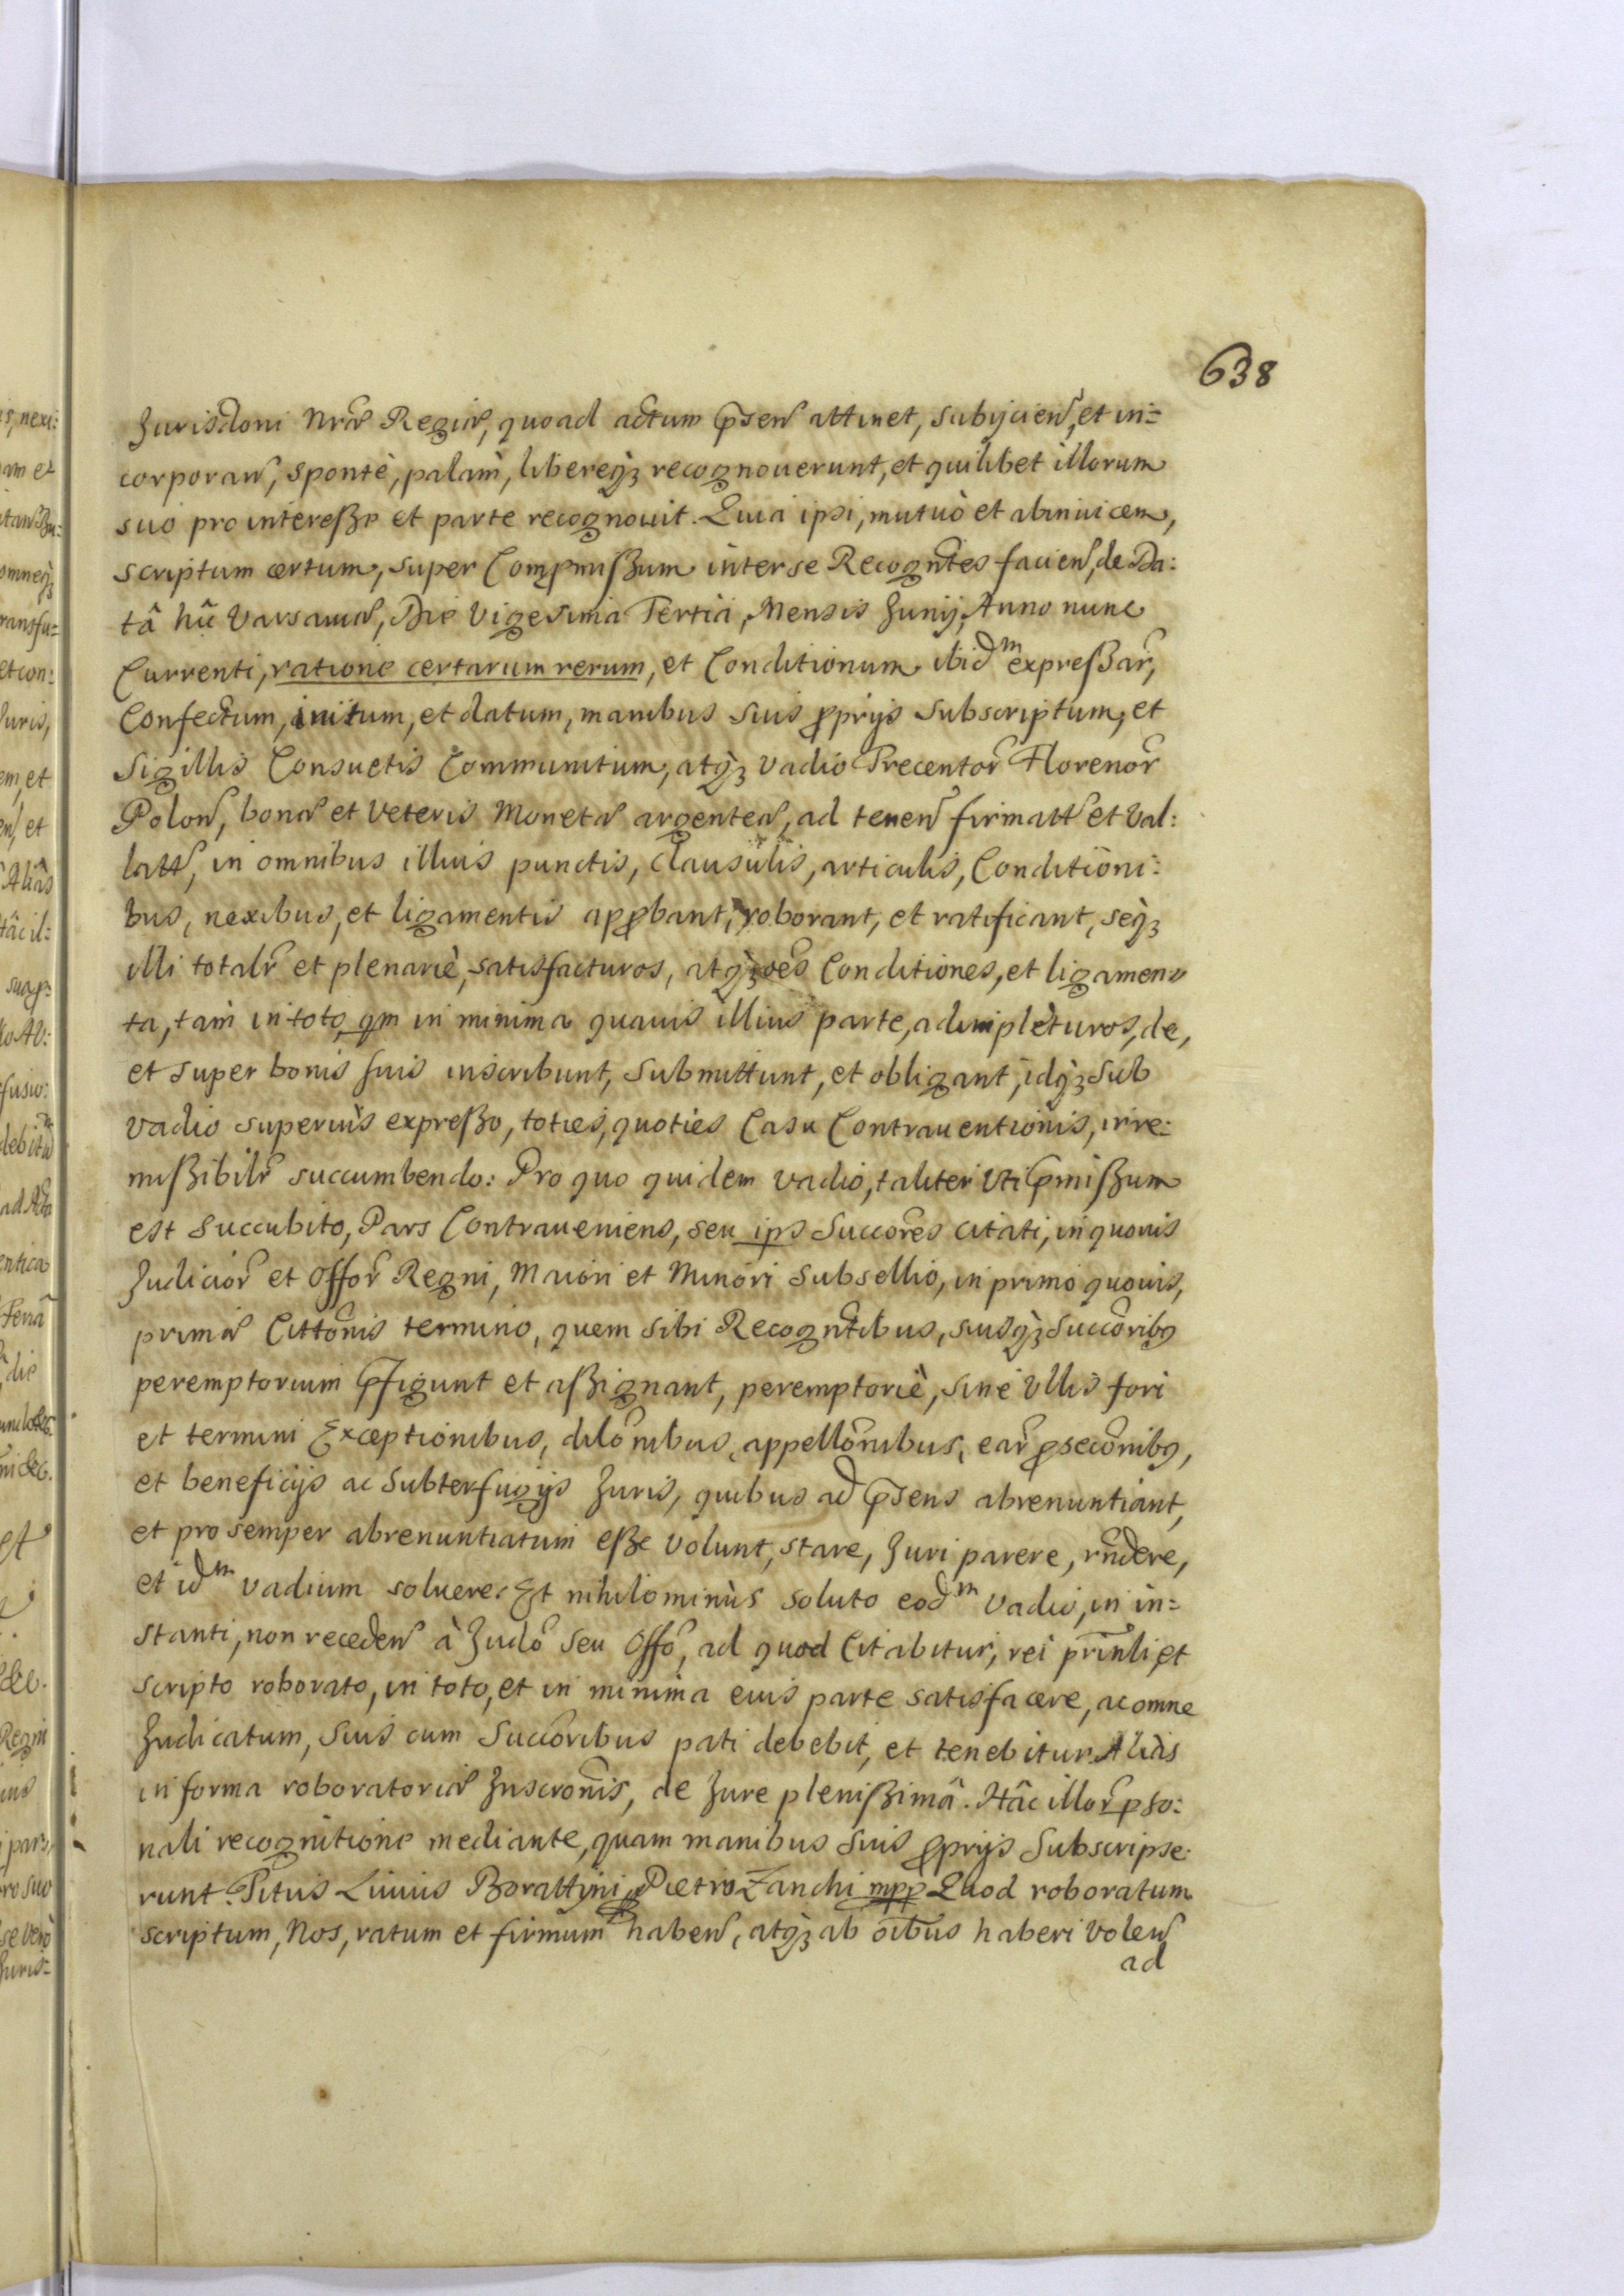 638
Jurisdoni Nrae Regiae, quoad actum pnsen attinet, subijcien, et in=
corporan, spontè, palàm, liberegꝫ recognouerunt, et quilibet illorum
suo pro interesse et parte recognouit. Quia ipsi, mutuò et abinuicem,
scriptum certum, super Compmissum inter se Recogntes facien, de Da:
tâ hîc Varsauiae, Die Vigesima Tertia, Mensis Junij, Anno nunc
Currenti, ratione certarum rerum, et Conditionum ibidm expressar,
Confectum, initum, et datum, manibus suis proprijs subscriptum, et
Sigillis Consuetis Communitum, atqꝫ vadio Trecentor Florenor
Polon, bonae et Veteris Monetae argenteae, ad tenen firmatt et Val:
latt, in omnibus illius punctis, Clausulis, articulis, Conditioni:
bus, nexibus, et ligamentis approbant, roborant, et ratificant, seqꝫ
illi totalr et plenariè, satisfacturos, atqꝫ oes Conditiones, et ligamen=
ta, tam in toto, qm in minima quauis illius parte, adimpleturos, de,
et super bonis suis inscribunt, submittunt, et obligant, idqꝫ sub
vadio superiùs expresso, toties, quoties Casu Contrauentionis, irre:
missibilr succumbendo: Pro quo quidem vadio, taliter uti pmissum
est succubito, Pars Contraueniens, seu ips Succores citati, in quouis
Judicior et Offor Regni, Maiori et Minori Subsellio, in primo quouis,
primae Cittonis termino, quem sibi Recogntibus, suisqꝫ Succoribꝰ
peremptorium pfigunt et assignant, peremptoriè, sine Ullis fori
et termini Exceptionibus, dilonibus, appellonibus, ear prosecconibꝰ,
et beneficijs ac Subterfugijs Juris, quibus ad psens abrenuntiant,
et pro semper abrenuntiatum esse volunt, stare, Juri parere, rndere,
et idm vadium soluere. Et nihilominùs soluto eodm Vadio, in in=
stanti, non receden à Judo seu Offo, ad quod Citabitur, rei prinli, et
scripto roborato, in toto, et in minima eius parte satisfacere, ac omne
Judicatum, suis cum Succoribus pati debebit, et tenebitur. Aliàs
in forma roboratoriae Inscronis, de Jure plenissimâ. Hâc illor pso:
nali recognitione mediante, quam manibus suis proprijs Subscripse
runt. Titus Liuius Borattyni Pietro Zanchi mpp Quod roboratum
scriptum, Nos, ratum et firmum haben, atqꝫ ab oibus haberi volen
ad